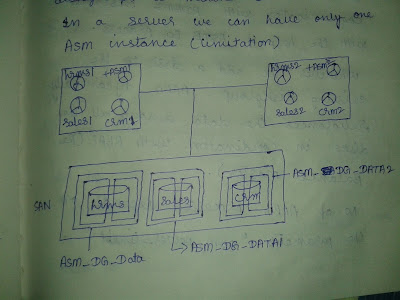 In a server we can have only one
Asm instance (limitation)
Hrms1 +ASM1
Sales1 Crm1
Hrms2 +ASM2
Sales2 CRM2
SAN
Hrms Sales Crm
ASM_DG_DATA2
ASM_DG_Data
ASM_DG_DATA1